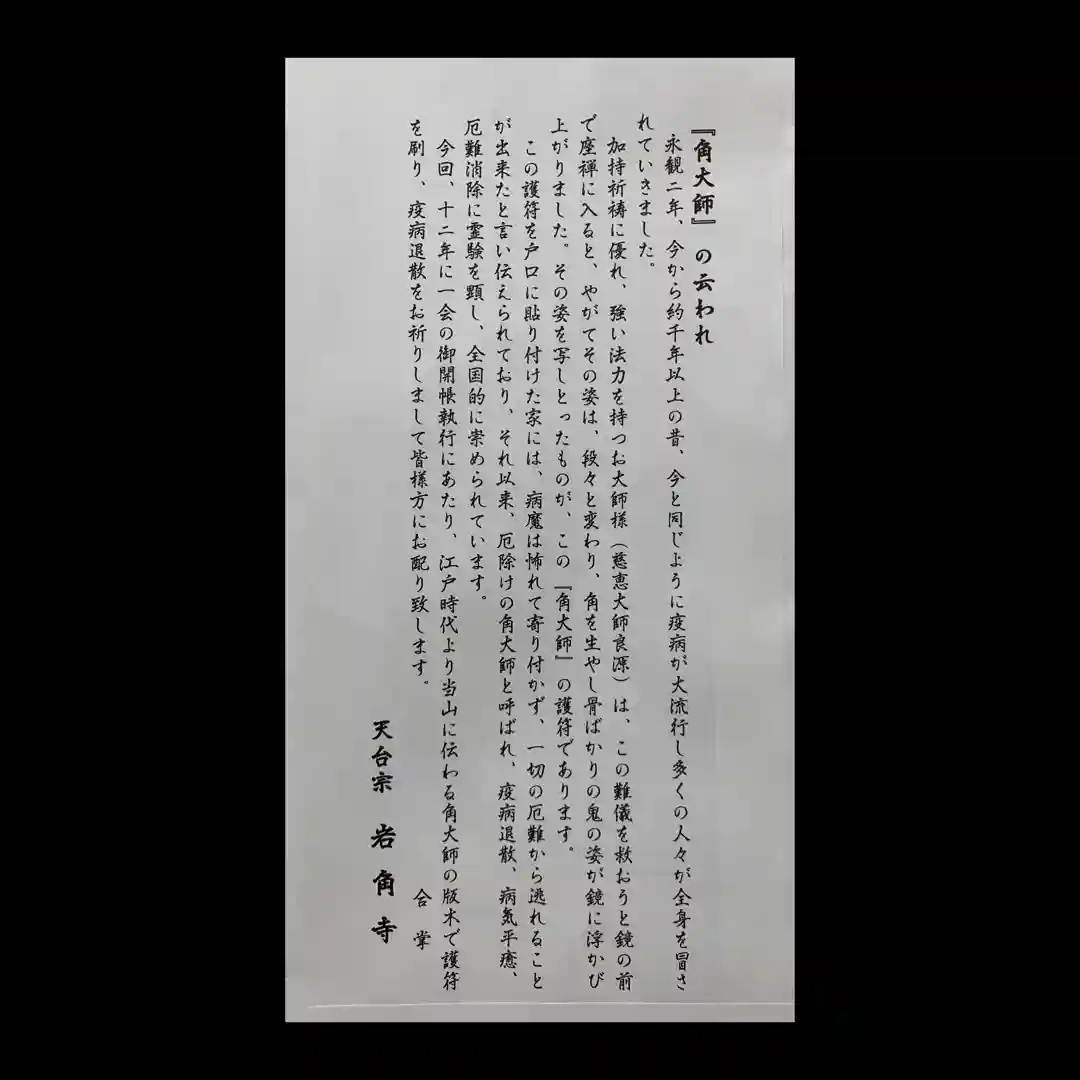 『角大師』の云われ
永観二年、今から約千年以上の昔、今と同じように疫病が大流行し多くの人々が全身を冒さ
れていきました。
加持祈祷に優れ、強い法力を持つお大師様（慈恵大師良源）は、この難儀を救おうと鏡の前
で座禅に入ると、やがてその姿は、段々と変わり、角を生やし骨ばかりの鬼の姿が鏡に浮かび
上がりました。その姿を写しとったものが、この『角大師』の護符であります。
この護符を戸口に貼り付けた家には、病魔は怖れて寄り付かず、一切の厄難から逃れること
が出来たと言い伝えられており、それ以来、厄除けの角大師と呼ばれ、疫病退散、病気平癒、
厄難消除に霊験を顕し、全国的に崇められています。
今回、十二年に一会の御開帳執行にあたり、江戸時代より当山に伝わる角大師の版木で護符
を刷り、疫病退散をお祈りしまして皆様方にお配り致します。
合掌
天台宗 岩角寺